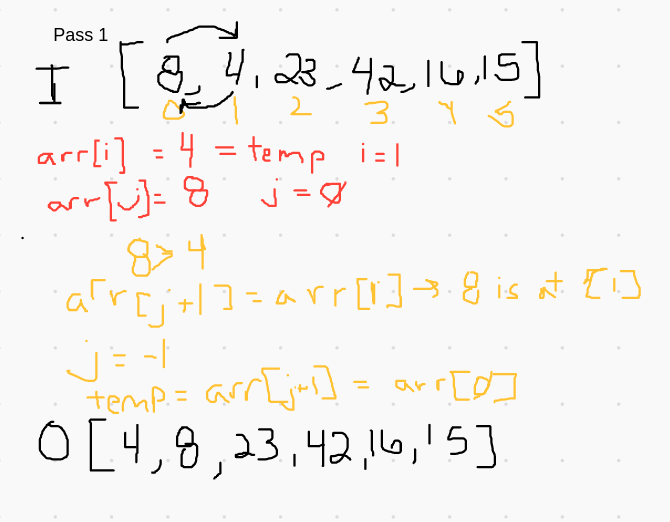 Pass 1
I [8, 4, 23, 42, 16, 15]
0 1 2 3 4 5
arr[i] = 4 = temp i=1
arr[j]= 8 j=0
8>4
arr[j+1] = arr[1] → 8 is at [1]
j = -1
temp = arr[j+1] = arr[0]
O [4, 8, 23, 42, 16, 15]